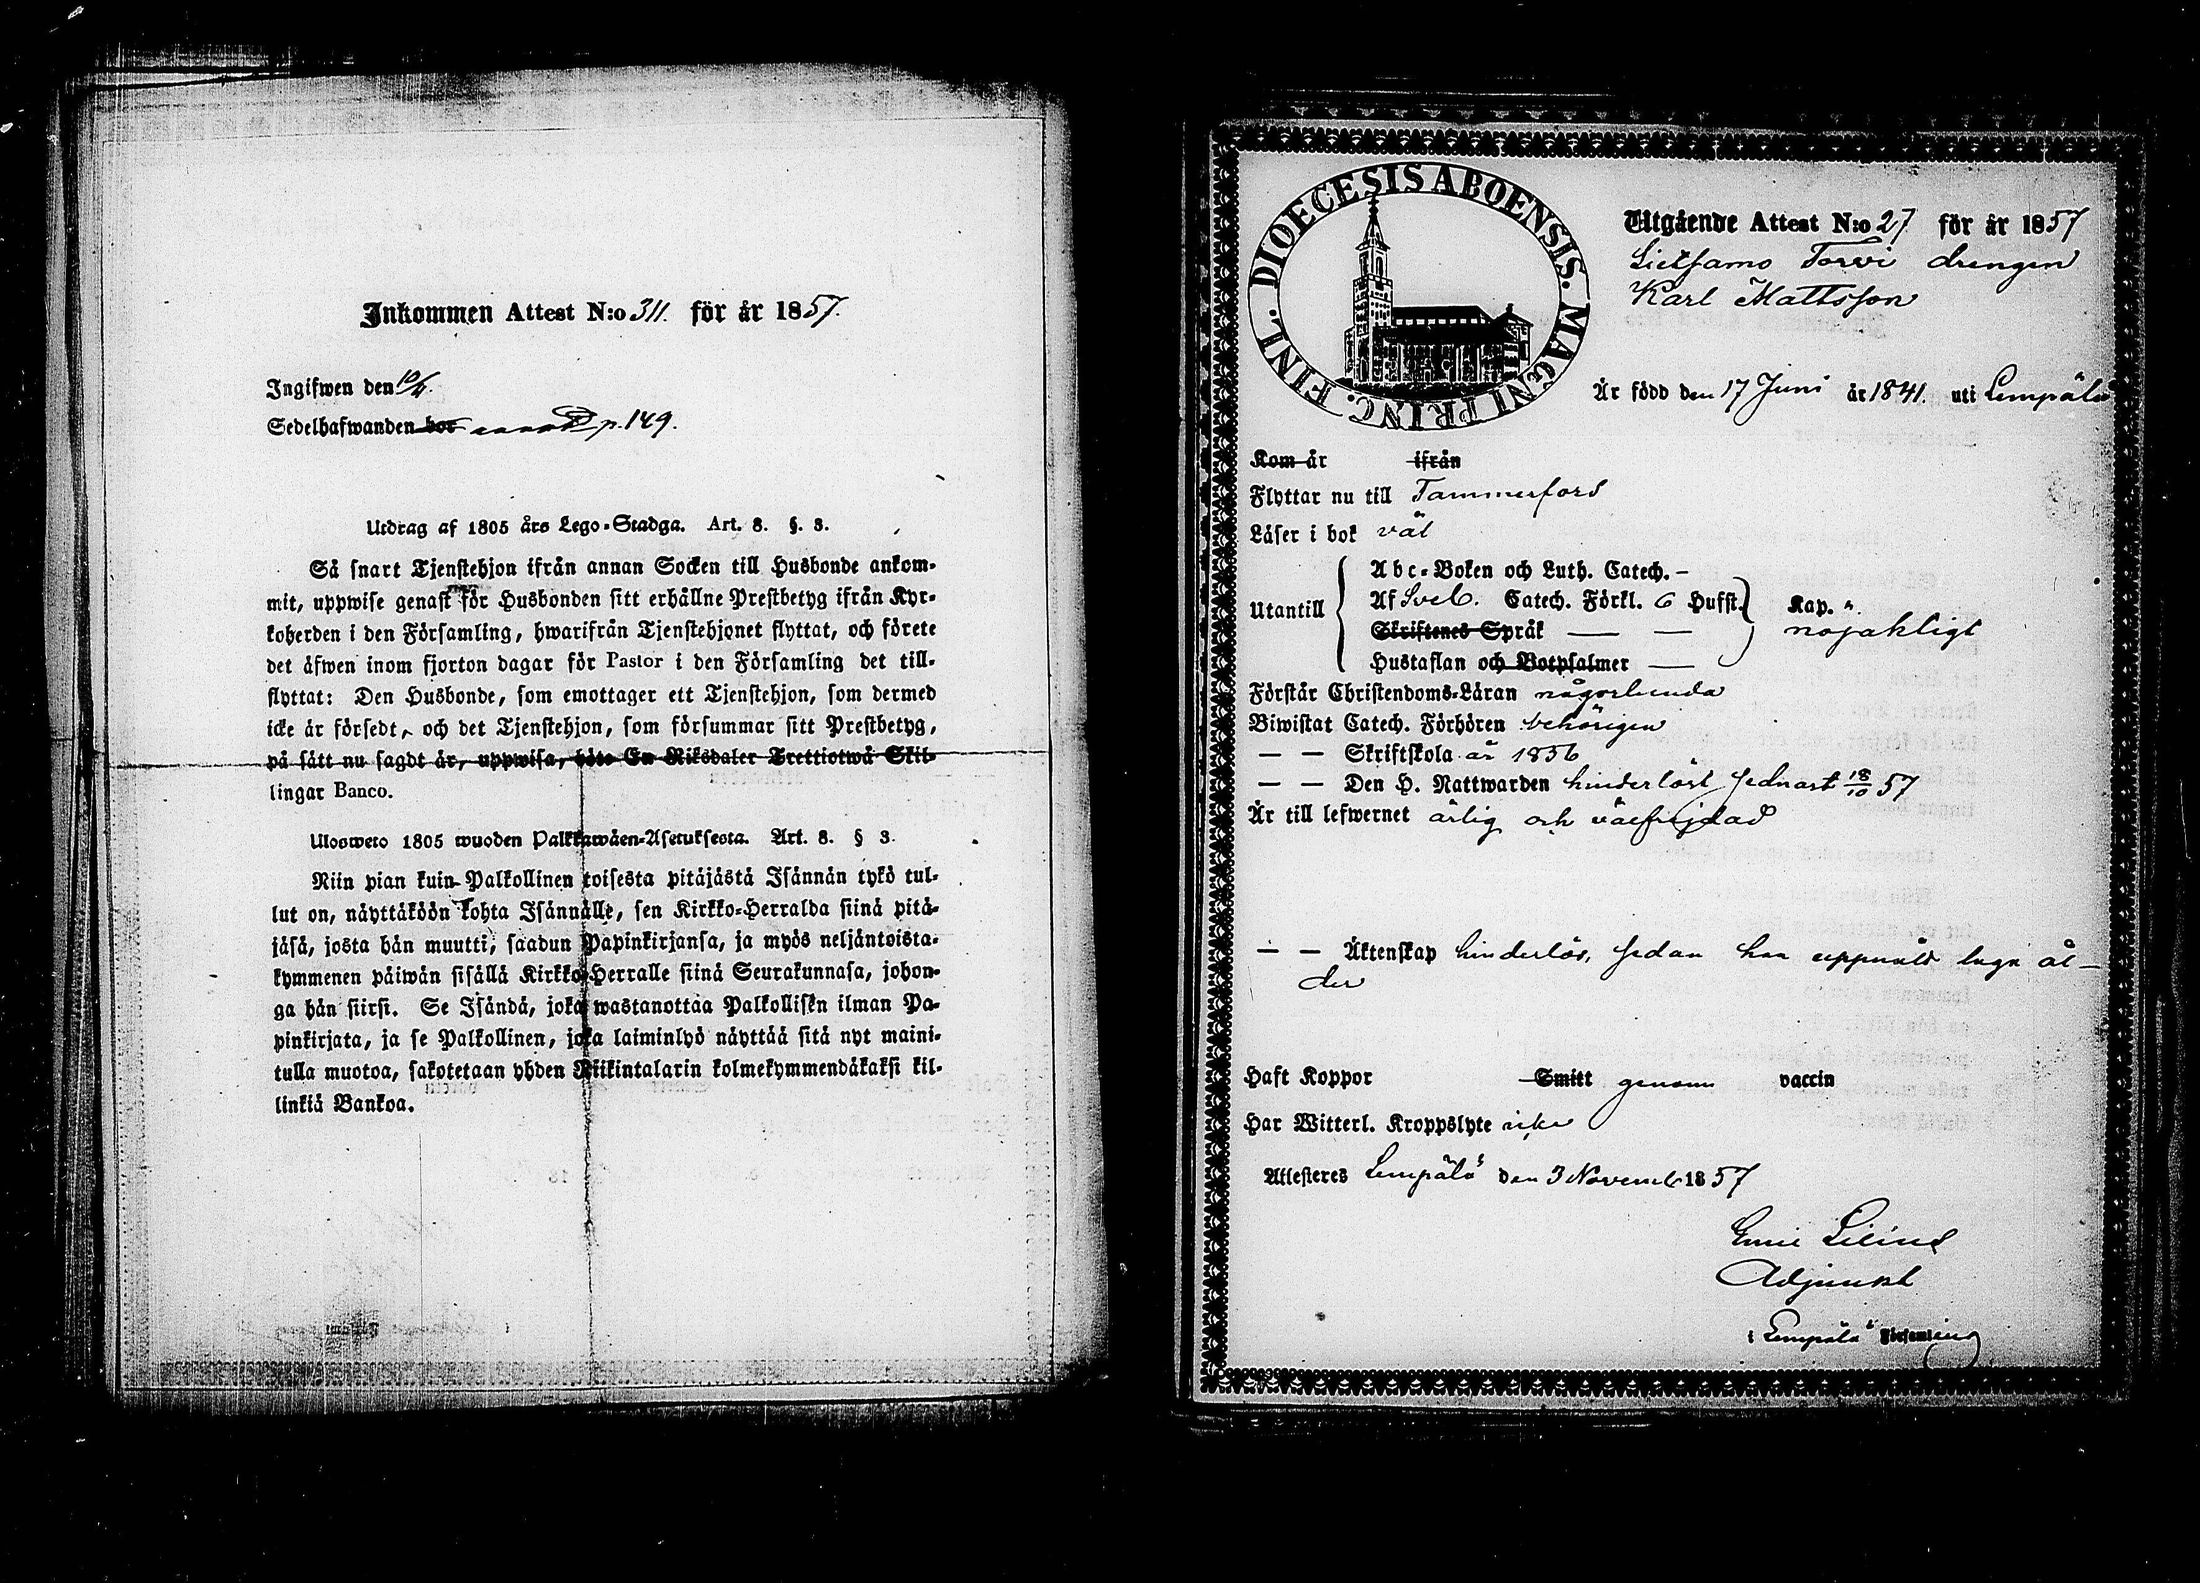 Inkommen Attest N:o 311. för år 1857.
Ingifwen den 10/11.
Sedelhafwanden bor p. 149.
Utdrag af 1805 års Lego-Stadga. Art. 8. §. 3.
Så snart Tjenstehjon ifrån annan Socken till Husbonde ankom-
mit, uppwise genast för Husbonden sitt erhållne Prestbetyg ifrån Kyr-
koherden i den Församling, hwarifrån Tjenstehjonet flyttat, och förete
det äfwen inom fjorton dagar för Pastor i den Församling det till-
flyttat: Den Husbonde, som emottager ett Tjenstehjon, som dermed
icke är försedt, och det Tjenstehjon, som försummar sitt Prestbetyg,
på sätt nu sagdt är, uppwisa, böte En Riksdaler Trettiotwå Skil-
lingar Banco.
Ulosweto 1805 wuoden Palkkawäen-Asetuksesta. Art. 8. § 3.
Niin pian kuin Palkollinen toisesta pitäjästä Isännän tykö tul-
lut on, näyttäköön kohta Isännälle, sen Kirkko-Herralda siinä pitä-
jäsä, josta hän muutti, saadun Papinkirjansa, ja myös neljäntoista-
kymmenen päiwän sisällä Kirkko-Herralle siinä Seurakunnasa, johon-
ga hän siirsi. Se Isändä, joka wastanottaa Palkollisen ilman Pa-
pinkirjata, ja se Palkollinen, joka laiminlyö näyttää sitä nyt maini-
tulla muotoa, sakotetaan yhden Riikintalarin kolmekymmendäkaksi kil-
linkiä Bankoa.
DIOECESIS ABOENSIS. MAGNI PRINC. FINL.
Utgående Attest N:o 27 för år 1857
Torvi drengen
Karl Mattsson
Är född den 17 Juni år 1841. uti Lempälä
Kom år ifrån
Flyttar nu till Tammerfors
Läser i bok väl
Utantill
Abc-Boken och Luth. Catech. —
Af Sveb. Catech. Förkl. 6 Hufst.
Skriftenes Språk — —
Hustaflan och Botpsalmer —
Kap. "
nöjakligt
Förstår Christendoms-Läran någorlunda
Biwistat Catech. Förhören behörigen
— — Skriftskola år 1856
— — Den H. Nattwarden hinderlöst sednast 18/10 57
Är till lefwernet ärlig och välfrejdad
— — Äktenskap hinderlös, sedan han uppnått laga ål-
der
Haft Koppor Smitt genom vaccin
Har Witterl. Kroppslyte icke
Attesteres Lempälä den 3 Novemb 1857
Emil Lilius
Adjunkt
i Lempälä Församling